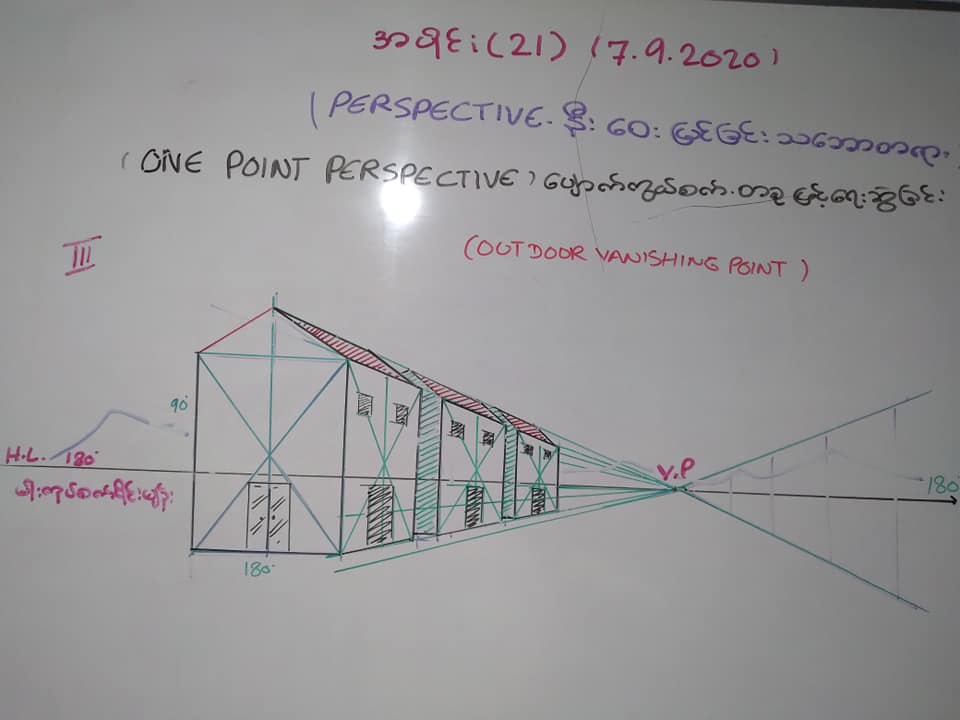 အပိုင်း (21) (7.9.2020)
(PERSPECTIVE. နီး ဝေး မြင်ခြင်း သဘောတရား)
(ONE POINT PERSPECTIVE) ပျောက်ကွယ်စက်.တခု မြင့်ရေးဆွဲခြင်း
III
(OUTDOOR VANISHING POINT)
90°
H.L. 180°
V.P
180°
180°